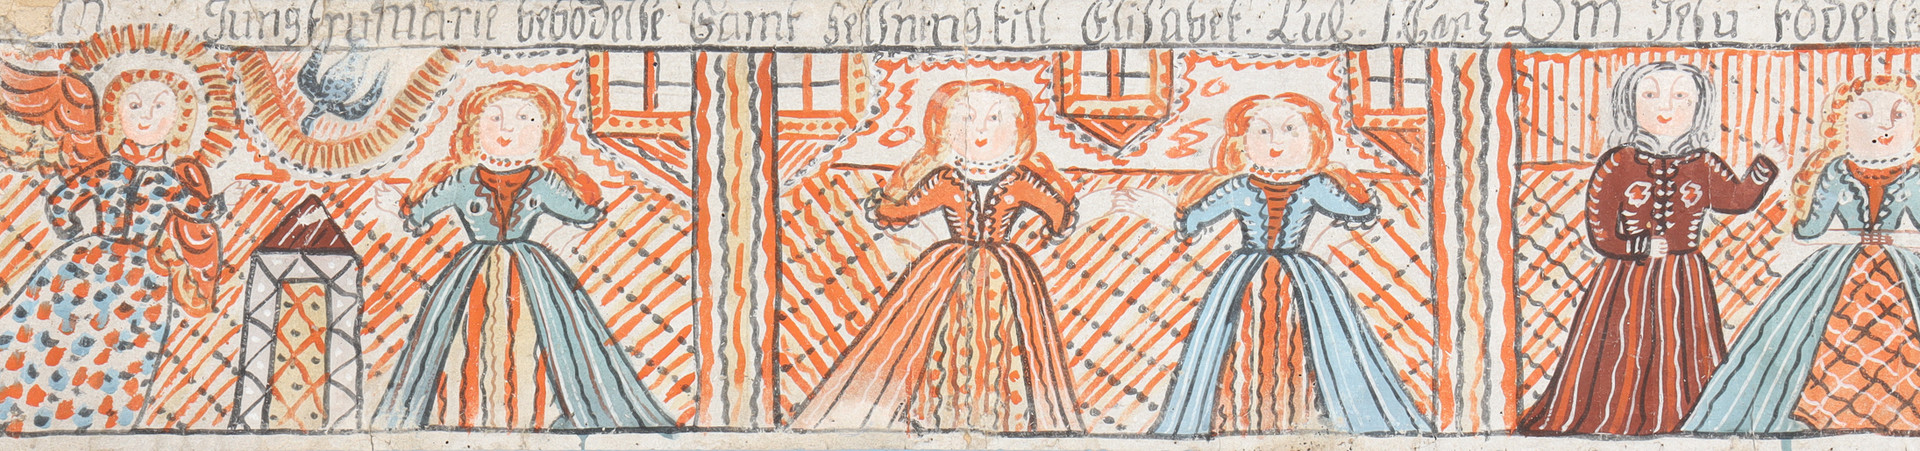 Jungfru Marie bebodelse Samt helsning till Elisabet. Luc. 1. Cap Om Jesu födelse